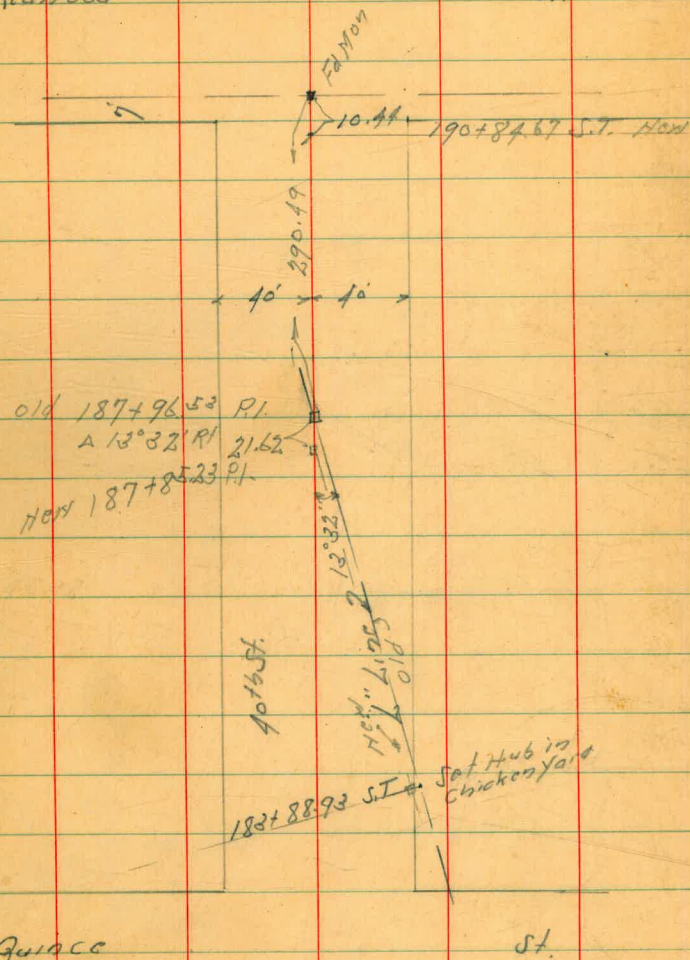 Fd Mon
10.44
190+84.67 S.T. New
290.49
40' 40'
Old 187+96.53 P.I.
Δ 13°32' Rt 21.62
New 187+85.23 P.I.
13°32'
New "L" Line
Old
40th St.
Set Hub in
Chicken Yard
183+88.93 S.T.
Quince St.